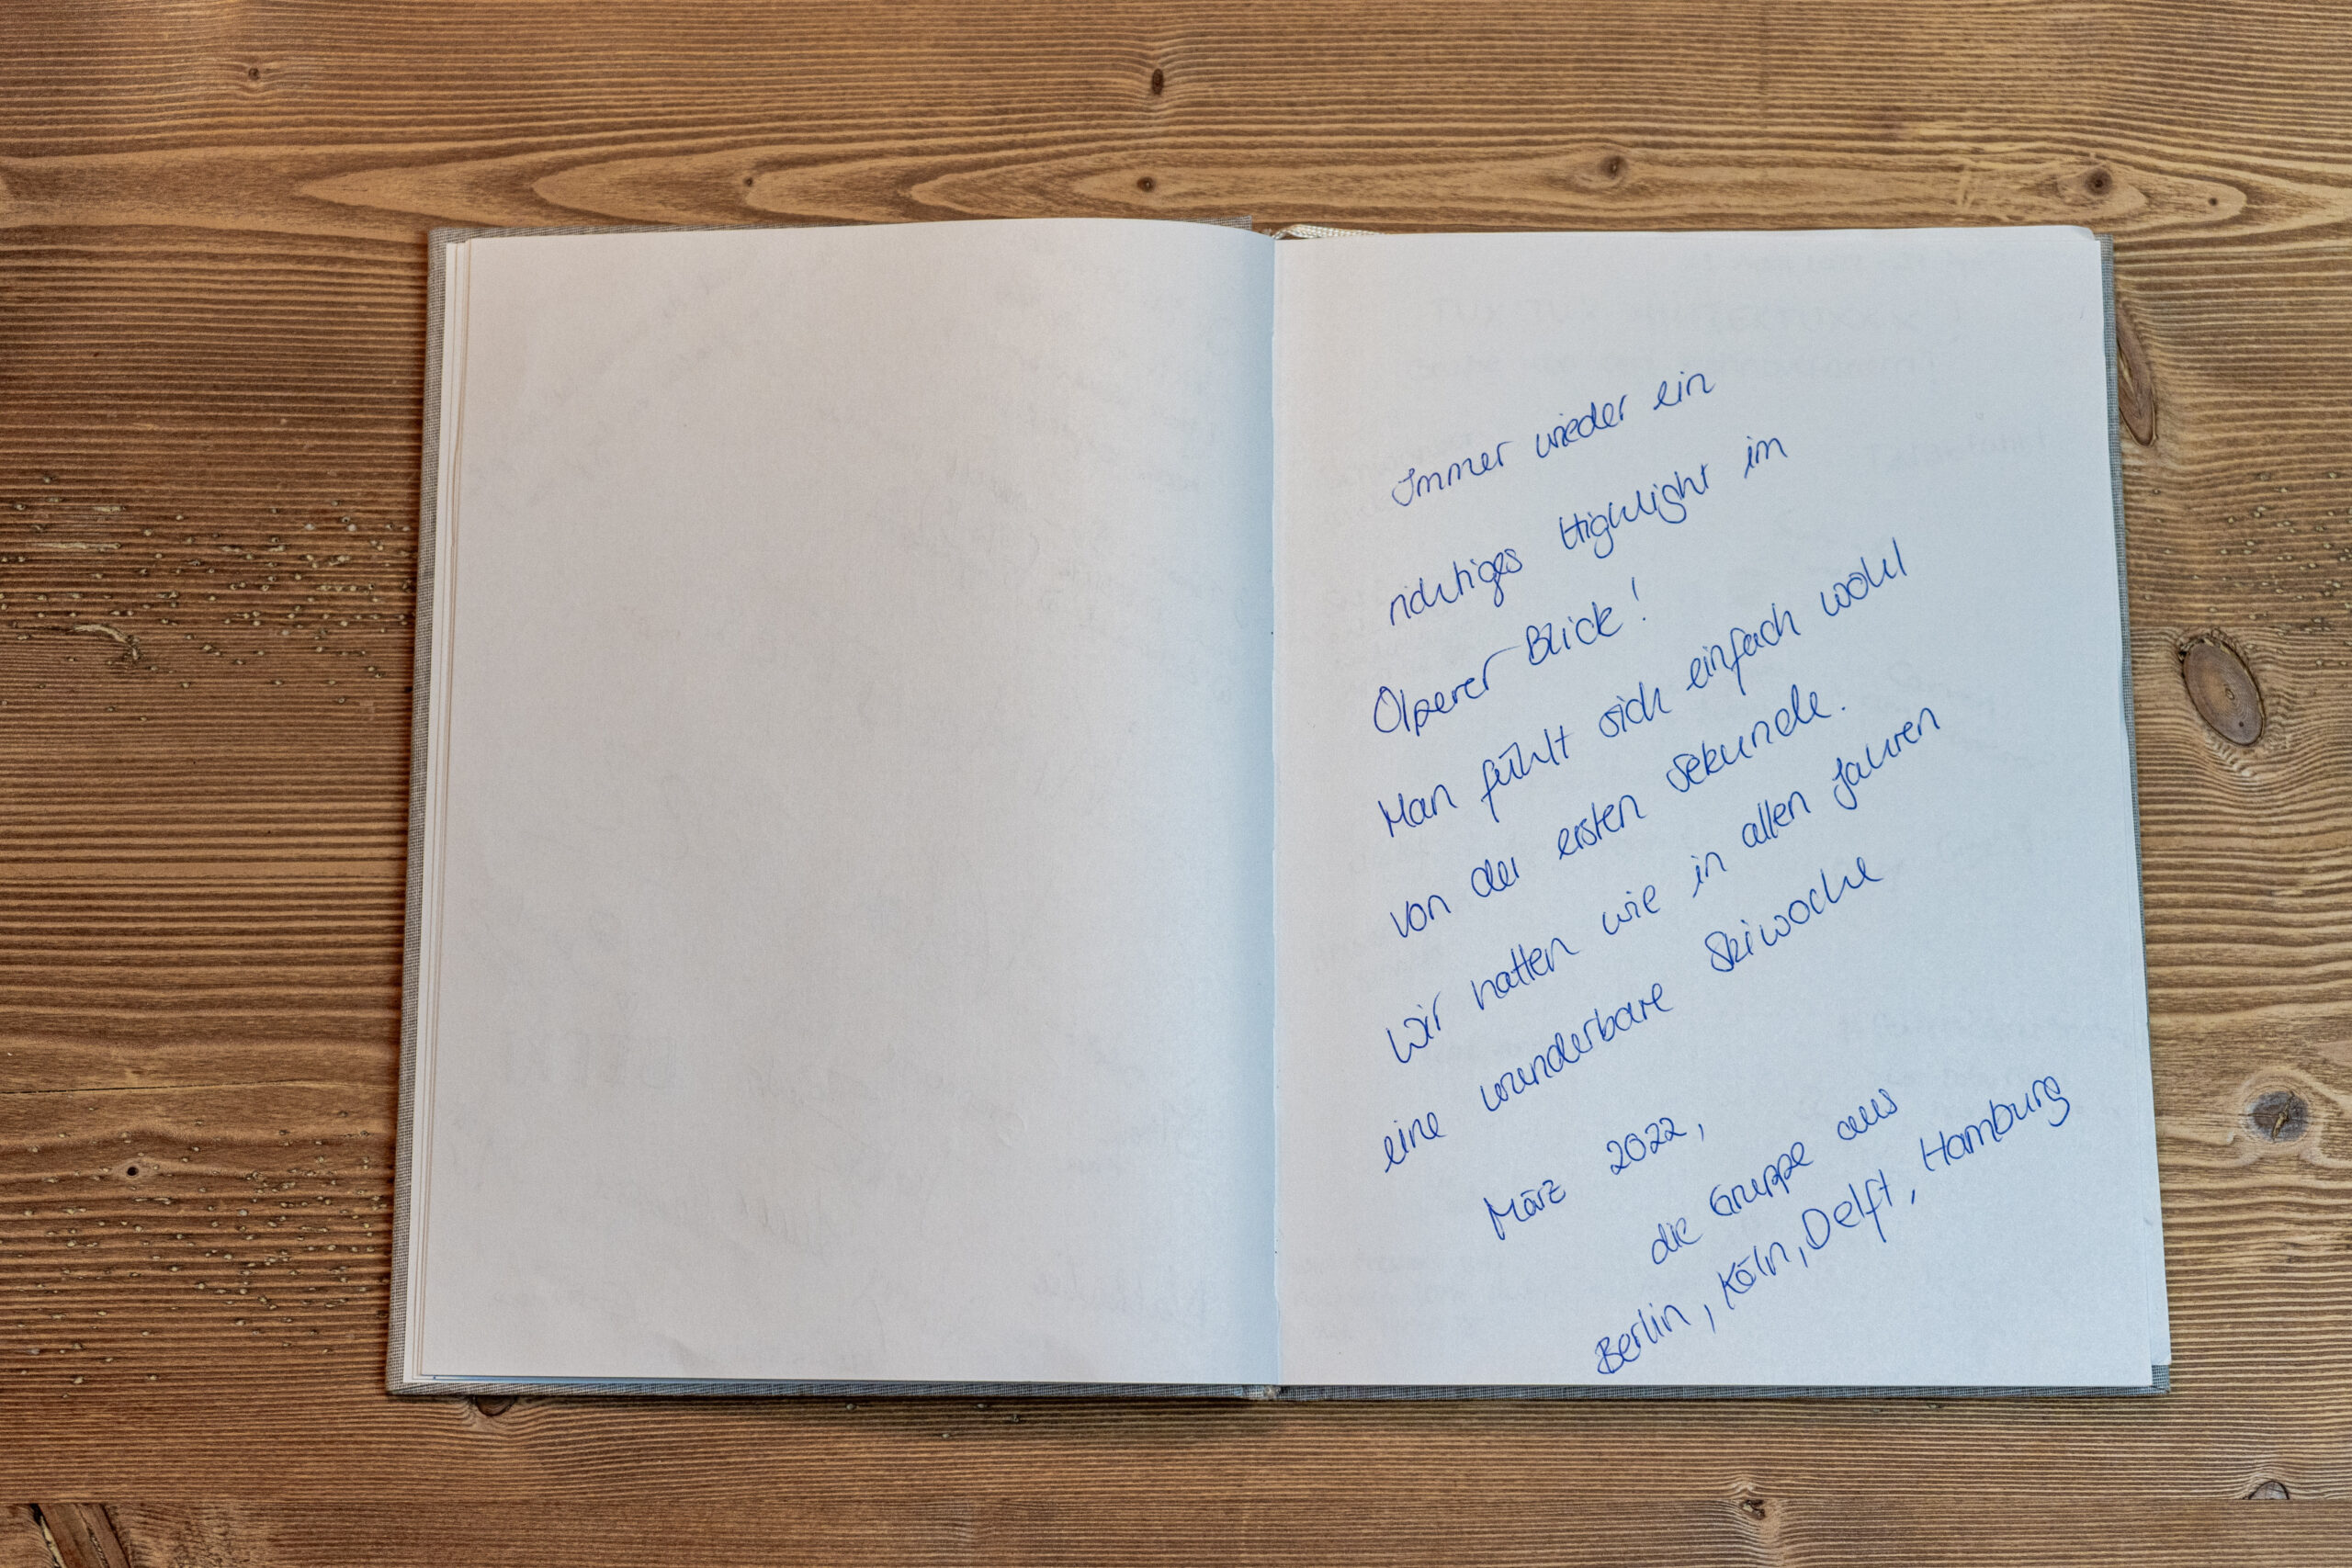 Immer wieder ein
richtiges Highlight im
Olperer Blick!
Man fühlt sich einfach wohl
von der ersten Sekunde.
Wir hatten wie in allen Jahren
eine wunderbare Skiwoche
März 2022,
die Gruppe aus
Berlin, Köln, Delft, Hamburg